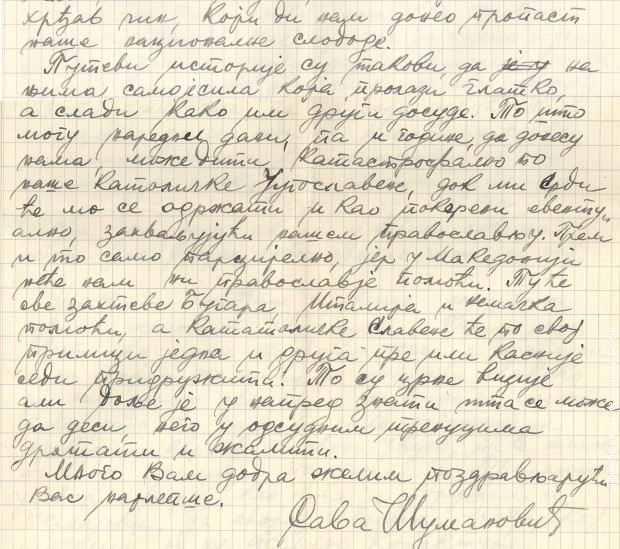 хрђав чин, који би нам донео пропаст
наше националне слободе.
Путеви историје су такови, да је у на
њима само јесила која пролази глатко,
а слади како им други досуде. То што
могу наредни дани, па и године, да донесу
нама, може бити, катастрофално по
наше католичке Југославене, док ми Срби
ће мо се одржати и као покорени евенту-
ално, захваљујући нашем православљу. Прем
и то само парцијелно, јер у Македонији
неће нам ни православје помоћи. Ту ће
све захтеве Бугара, Италија и Немачка
помоћи, а католичке Славене ће по свој
прилици једна и друга пре или касније
себи придружити. То су црне визије
али боље је у напред знати шта се може
да деси, него у одсудним тренуцима
дрктати и жалити.
Много Вам добра желим поздрављајући
Вас најлепше.
Сава Шумановић